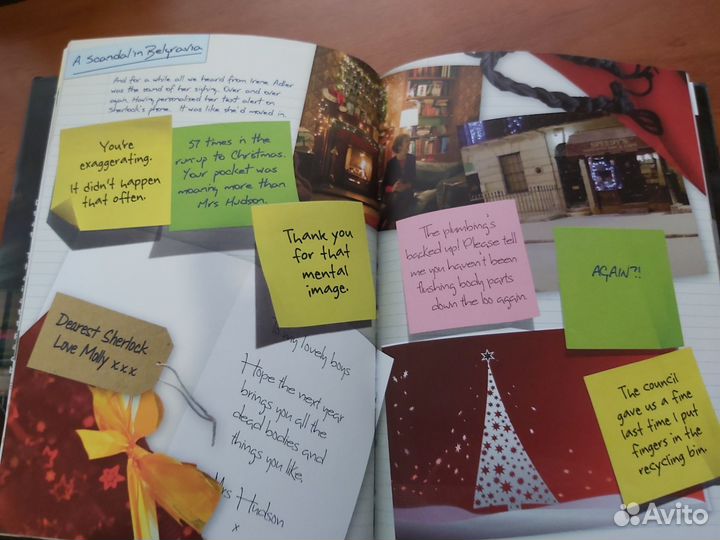 A Scandal in Belgravia
And for a while all we heard from Irene Adler
was the sound of her sighing. Over and over
again. Having personalised her text alert on
Sherlock's phone. It was like she'd moved in.
You're
exaggerating.
It didn't happen
that often.
57 times in the
run up to Christmas.
Your pocket was
moaning more than
Mrs Hudson.
Thank you
for that
mental
image.
Dearest Sherlock
Love Molly xxx
lovely boys
Hope the next year
brings you all the
dead bodies and
things you like.
Mrs Hudson
x
The plumbing's
backed up! Please tell
me you haven't been
flushing body parts
down the loo again.
AGAIN?!
The council
gave us a fine
last time I put
fingers in the
recycling bin.
Avito